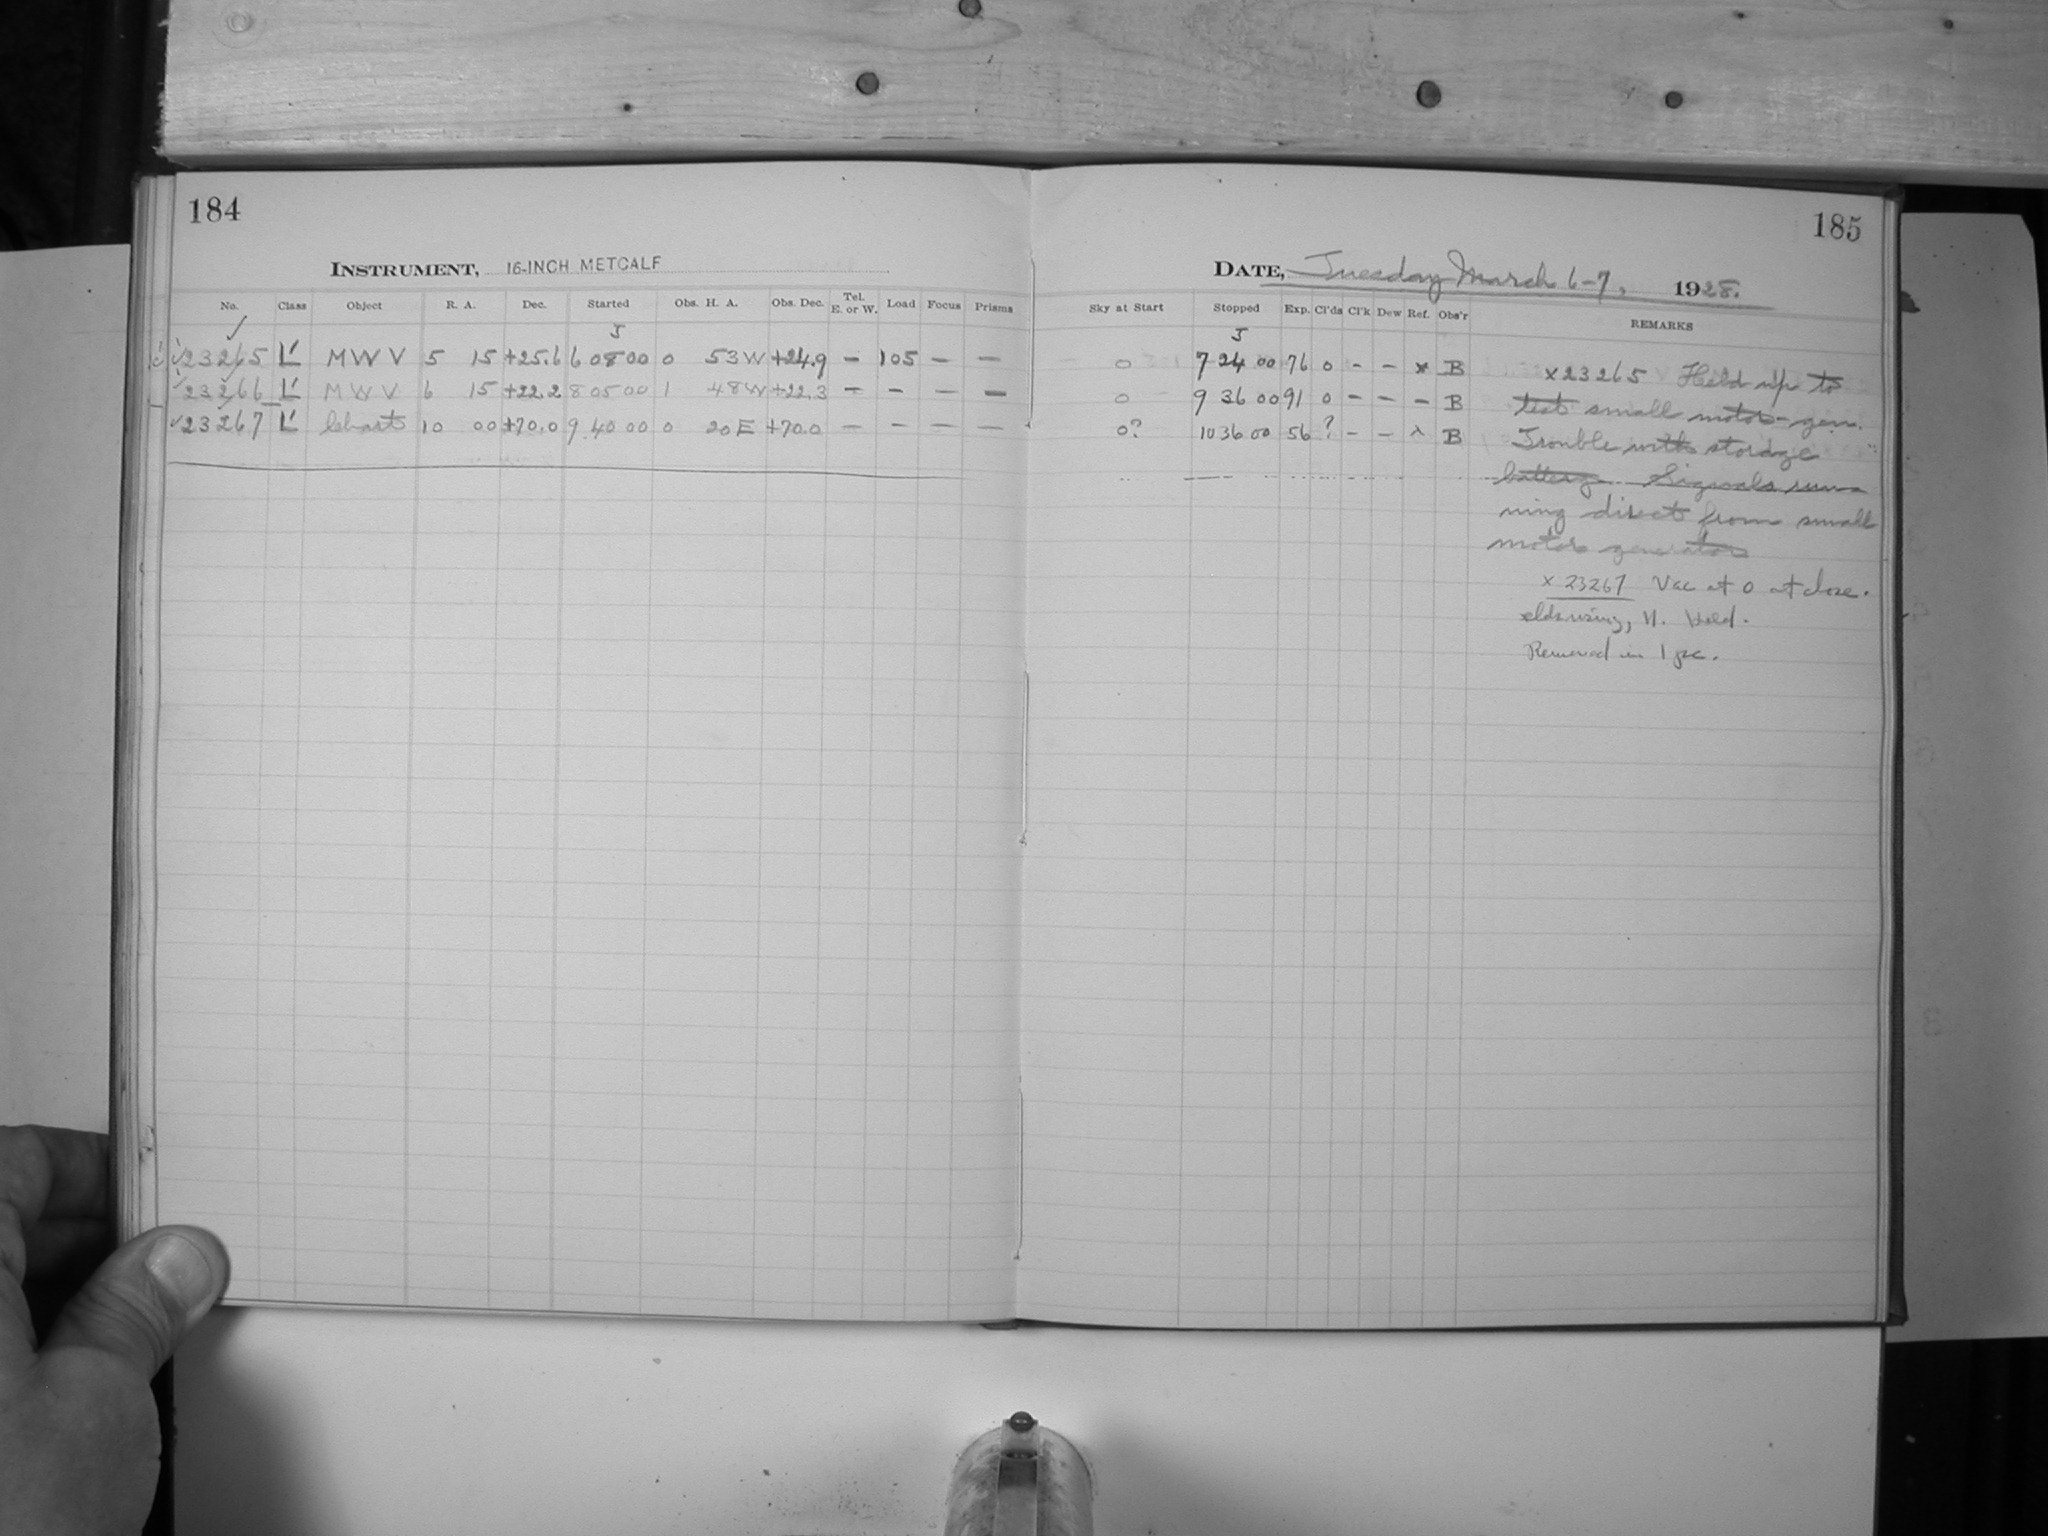 184
INSTRUMENT, 16-INCH METCALF
No. Class Object R. A. Dec. Started Obs. H. A. Obs. Dec. Tel. E. or W. Load Focus Prisms
J
23265 L' MWV 5 15 +25.6 6 08 00 0 53W +24.9 – 105 – –
23266 L' MWV 6 15 +22.2 8 05 00 1 48W +22.3 – – – –
23267 L' Chart 10 00 +70.0 9 40 00 0 20E +70.0 – – – –
185
DATE, Tuesday March 6-7, 1928.
Sky at Start Stopped Exp. Cl'ds Cl'k Dew Ref. Obs'r REMARKS
J
0 7 24 00 76 0 – – x B
0 9 36 00 91 0 – – – B
0? 10 36 00 56 ? – – x B
x23265 Held up to
test small motor-gen.
Trouble with storage
battery. Signals run-
ning direct from small
motor generator
x 23267 Vac at 0 at close.
N. Held.
Removed in 1 pc.